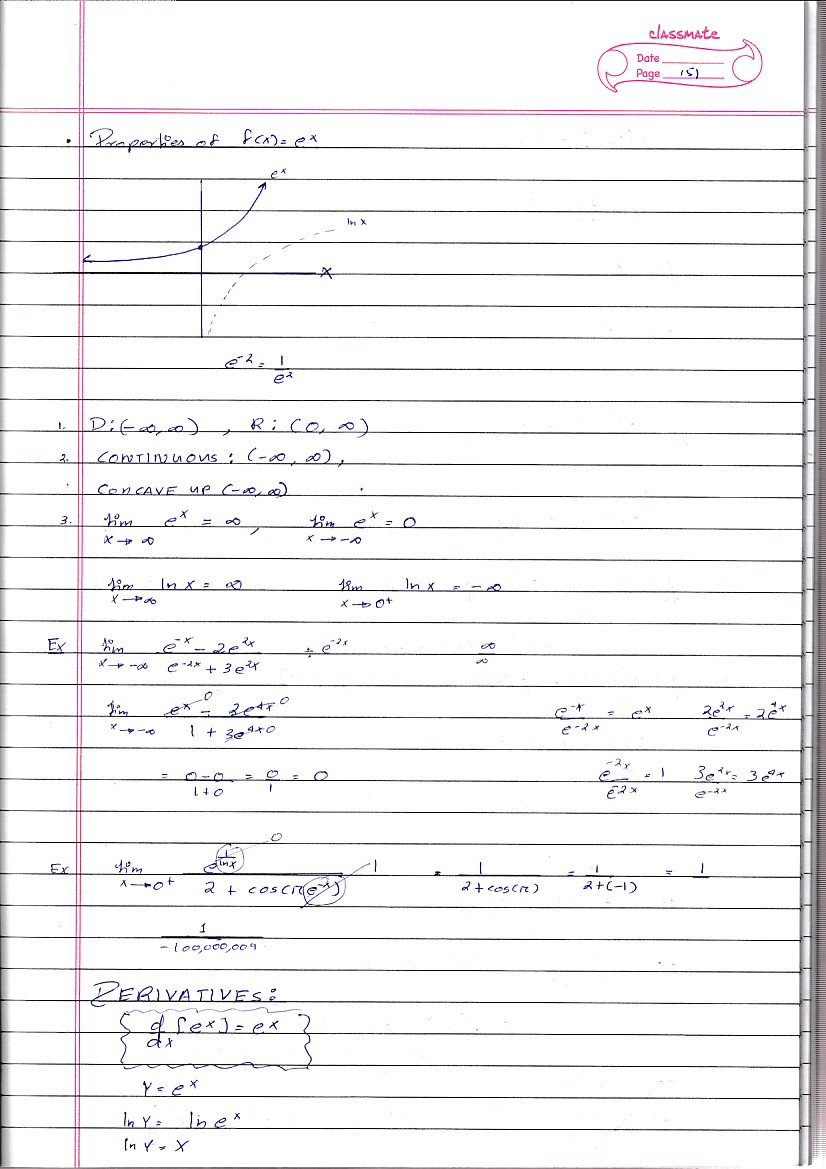 classmate
Date
Page 151
• Properties of f(x) = e^x
e^x
ln x
x
e^-2 = 1/e^2
1. D: (-∞, ∞) , R: (0, ∞)
2. CONTINUOUS : (-∞, ∞),
CONCAVE UP (-∞, ∞)
3. lim x→∞ e^x = ∞, lim x→-∞ e^x = 0
lim x→∞ ln x = ∞ lim x→0+ ln x = -∞
Ex lim x→-∞ (e^-x - 2e^2x)/(e^-2x + 3e^2x) ÷ e^-2x ∞/∞
lim x→-∞ (e^x 0 - 2e^4x 0)/(1 + 3e^4x 0) e^-x/e^-2x = e^x 2e^2x/e^-2x = 2e^4x
= (0-0)/(1+0) = 0/1 = 0 e^-2x/e^-2x = 1 3e^2x/e^-2x = 3e^4x
0
Ex lim x→0+ e^(1/ln x)/(2 + cos(π(e^-x))) 1 = 1/(2+cos(π)) = 1/(2+(-1)) = 1
1/-100,000,009
DERIVATIVES:
d/dx [e^x] = e^x
Y = e^x
ln Y = ln e^x
ln Y = X